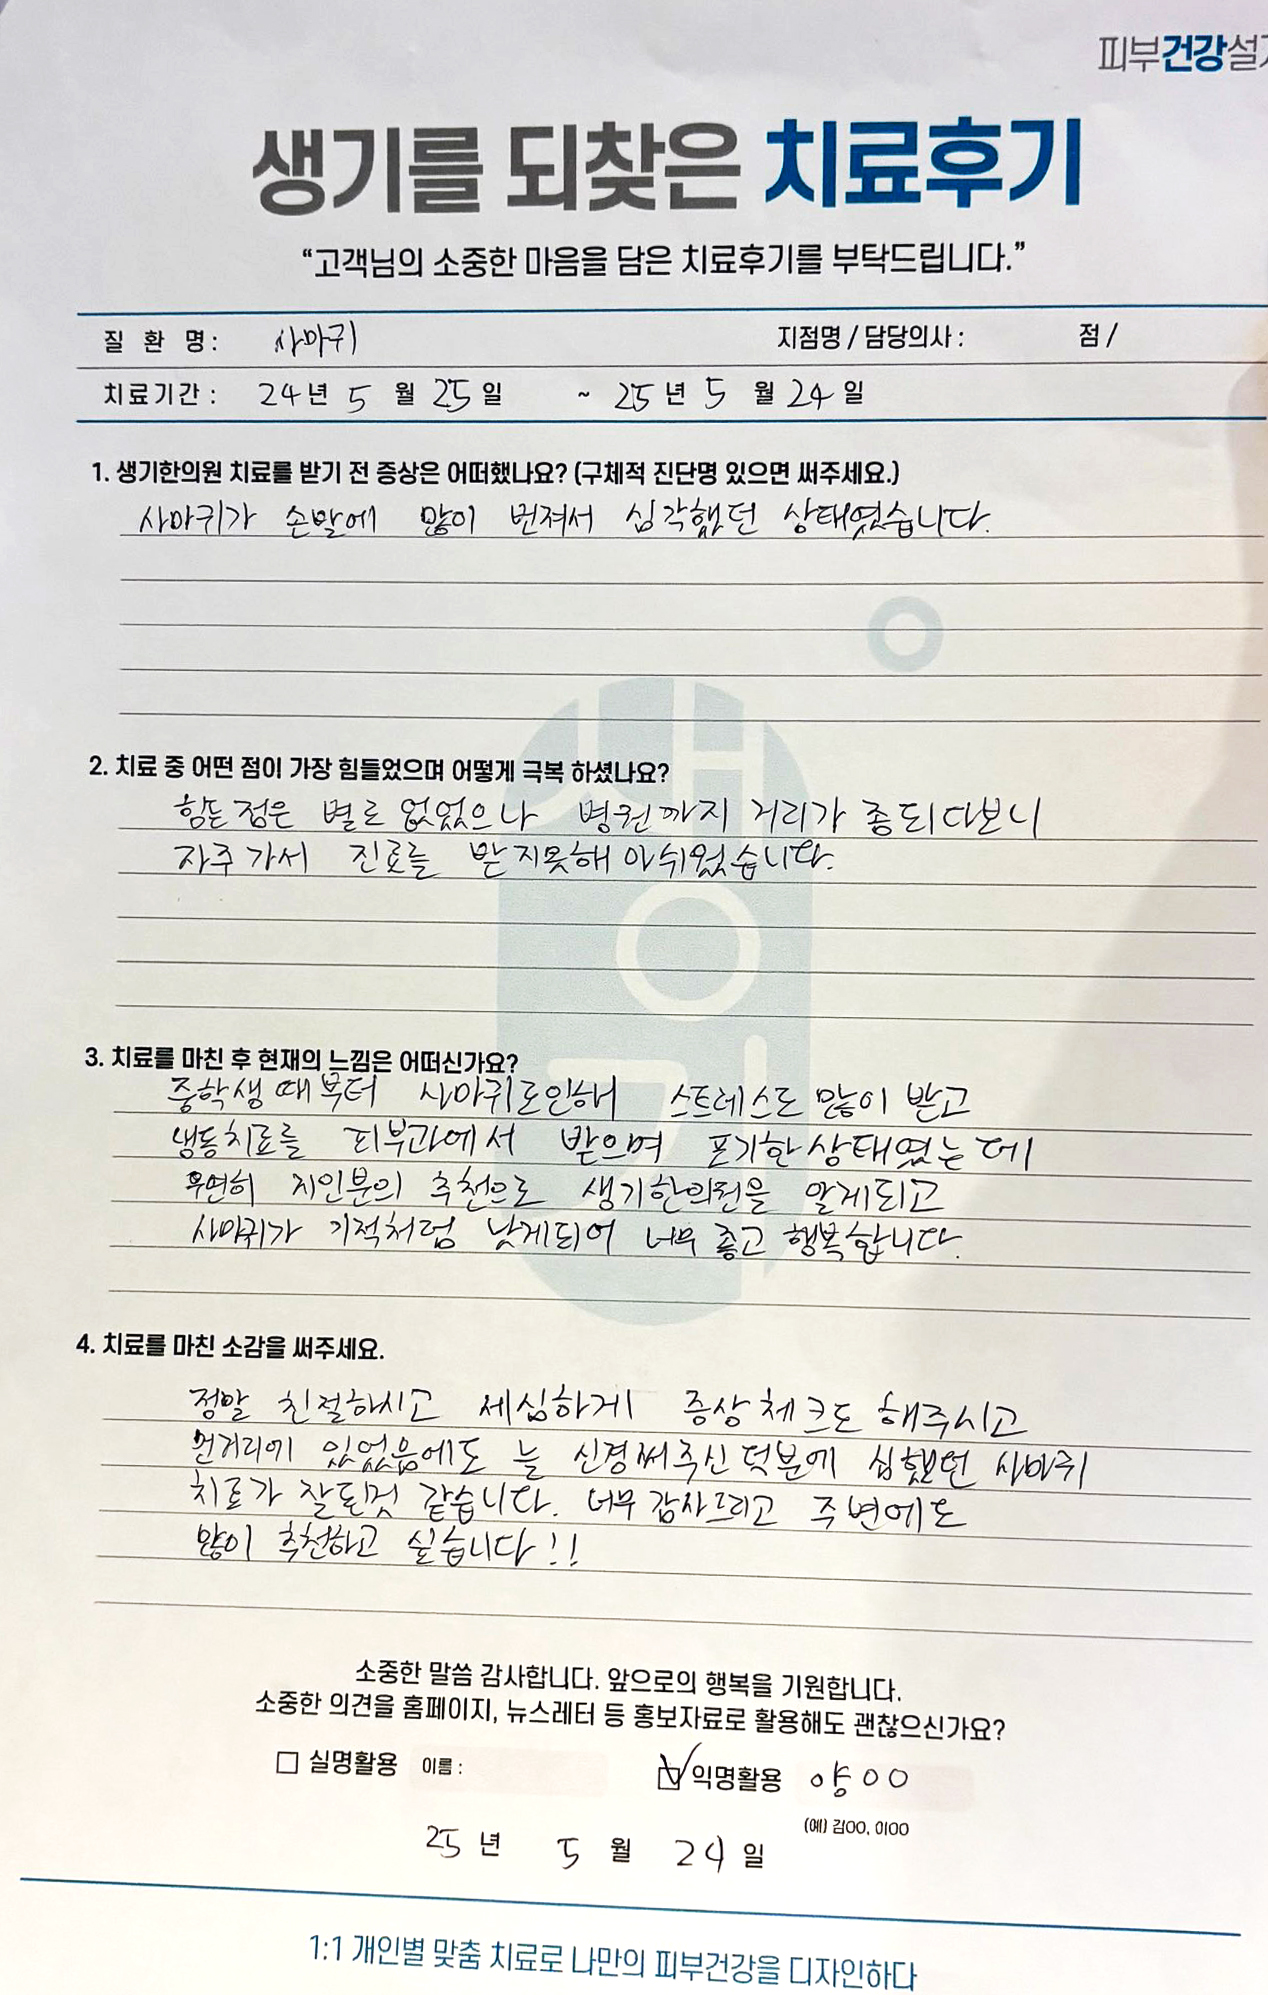 피부건강설
생기를 되찾은 치료후기
“고객님의 소중한 마음을 담은 치료후기를 부탁드립니다.”
질 환 명 : 사마귀 지점명 / 담당의사 : 점 /
치료기간 : 24 년 5 월 25 일 ~ 25 년 5 월 24 일
1. 생기한의원 치료를 받기 전 증상은 어떠했나요? (구체적 진단명 있으면 써주세요.)
사마귀가 손발에 많이 번져서 심각했던 상태였습니다.
2. 치료 중 어떤 점이 가장 힘들었으며 어떻게 극복 하셨나요?
힘든 점은 별로 없었으나 병원까지 거리가 좀되다보니
자주 가서 진료를 받지못해 아쉬웠습니다.
3. 치료를 마친 후 현재의 느낌은 어떠신가요?
중학생 때부터 사마귀로인해 스트레스도 많이 받고
냉동치료를 피부과에서 받으며 포기한 상태였는데
우연히 지인분의 추천으로 생기한의원을 알게되고
사마귀가 기적처럼 낫게되어 너무 좋고 행복합니다.
4. 치료를 마친 소감을 써주세요.
정말 친절하시고 세심하게 증상체크도 해주시고
먼거리에 있었음에도 늘 신경써주신 덕분에 심했던 사마귀
치료가 잘된것 같습니다. 너무 감사드리고 주변에도
많이 추천하고 싶습니다!!
소중한 말씀 감사합니다. 앞으로의 행복을 기원합니다.
소중한 의견을 홈페이지, 뉴스레터 등 홍보자료로 활용해도 괜찮으신가요?
실명활용 이름 : 익명활용 양OO
(예) 김OO, 이OO
25 년 5 월 24 일
1:1 개인별 맞춤 치료로 나만의 피부건강을 디자인하다